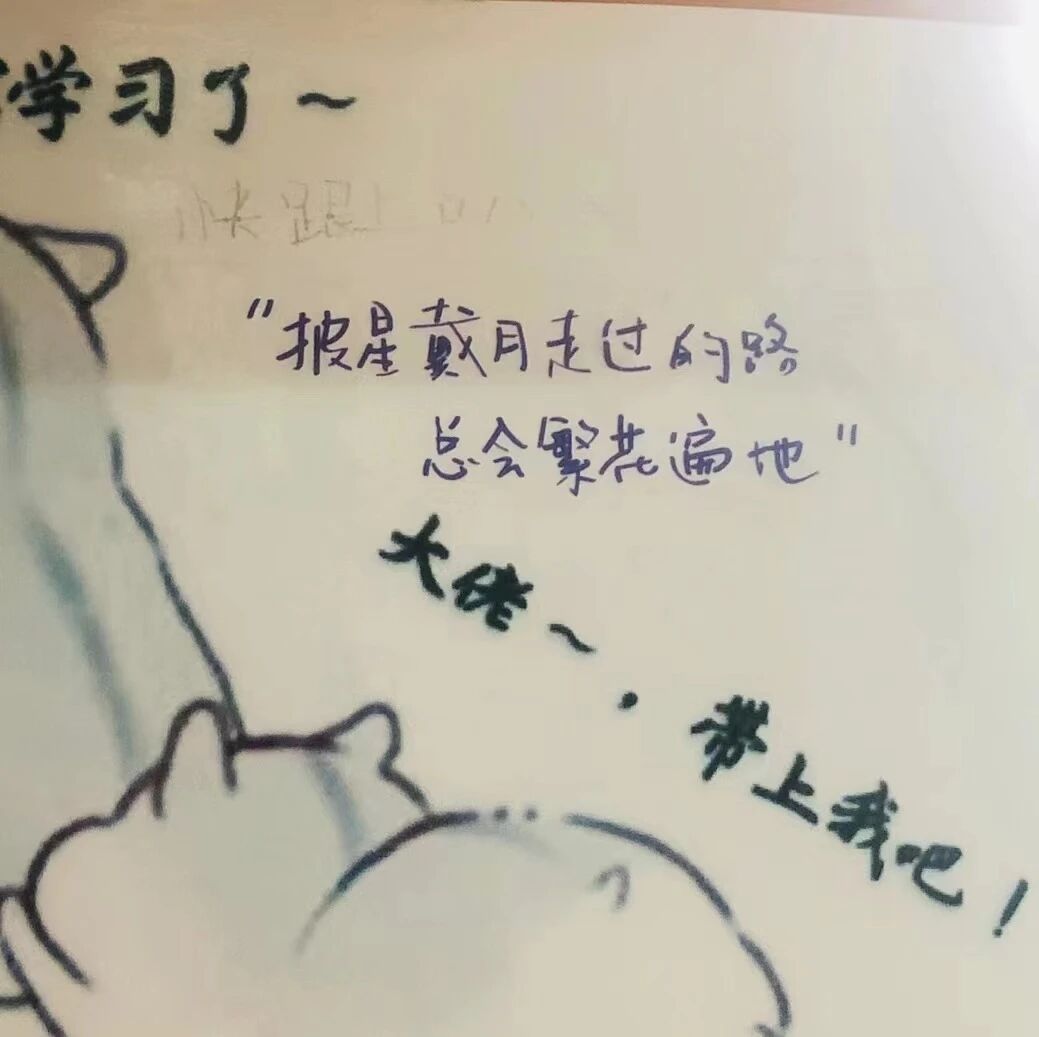 学习了~
快跟上
"披星戴月走过的路
总会繁花遍地"
大佬~.带上我吧!